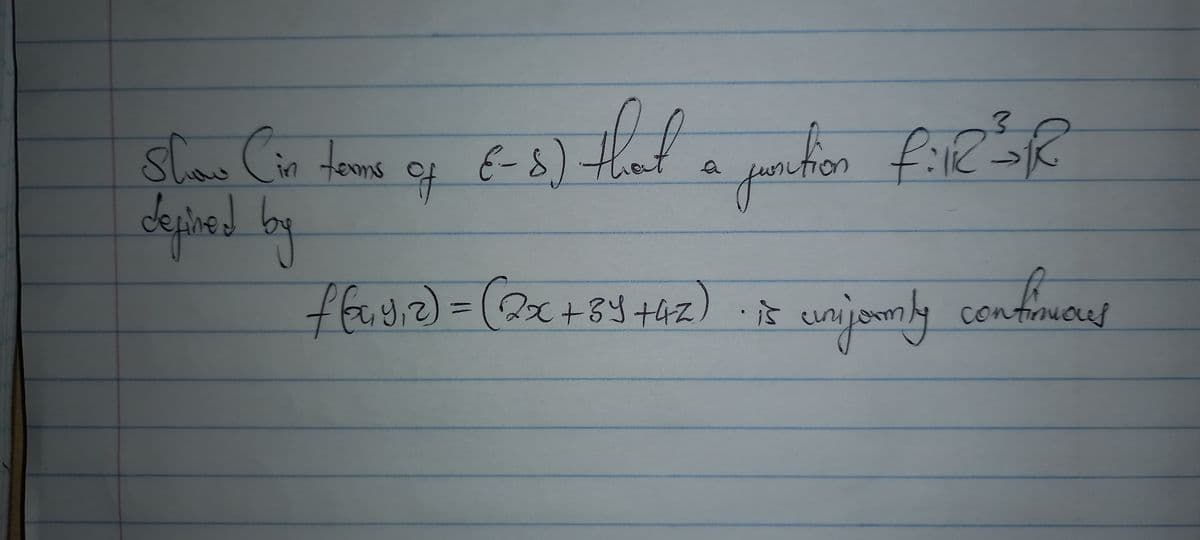 Show (in terms of ε-δ) that a function f:ℝ³→ℝ
defined by
f(x,y,z) = (2x+3y+4z) . is uniformly continuous